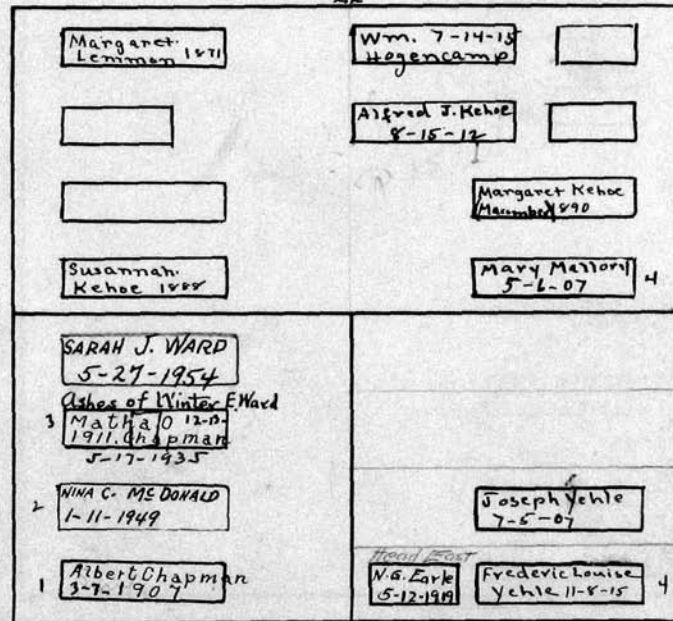 Margaret.
Lemmon 1871
Wm. 7-14-15
Hogencamp
Alfred J. Kehoe
8-15-12
Margaret Kehoe
(Macomber) 1890
Susannah.
Kehoe 1888
Mary Mallory
5-6-07
4
SARAH J. WARD
5-27-1954
Ashes of Winter E. Ward
3
Matha O 12-13-
1911. Chapman
5-17-1935
2
NINA C. McDONALD
1-11-1949
1
Albert Chapman
3-7-1907
Joseph Yehle
7-5-07
Head East
N.G. Earle
5-12-1919
Frederic Louise
Yehle 11-8-15
4